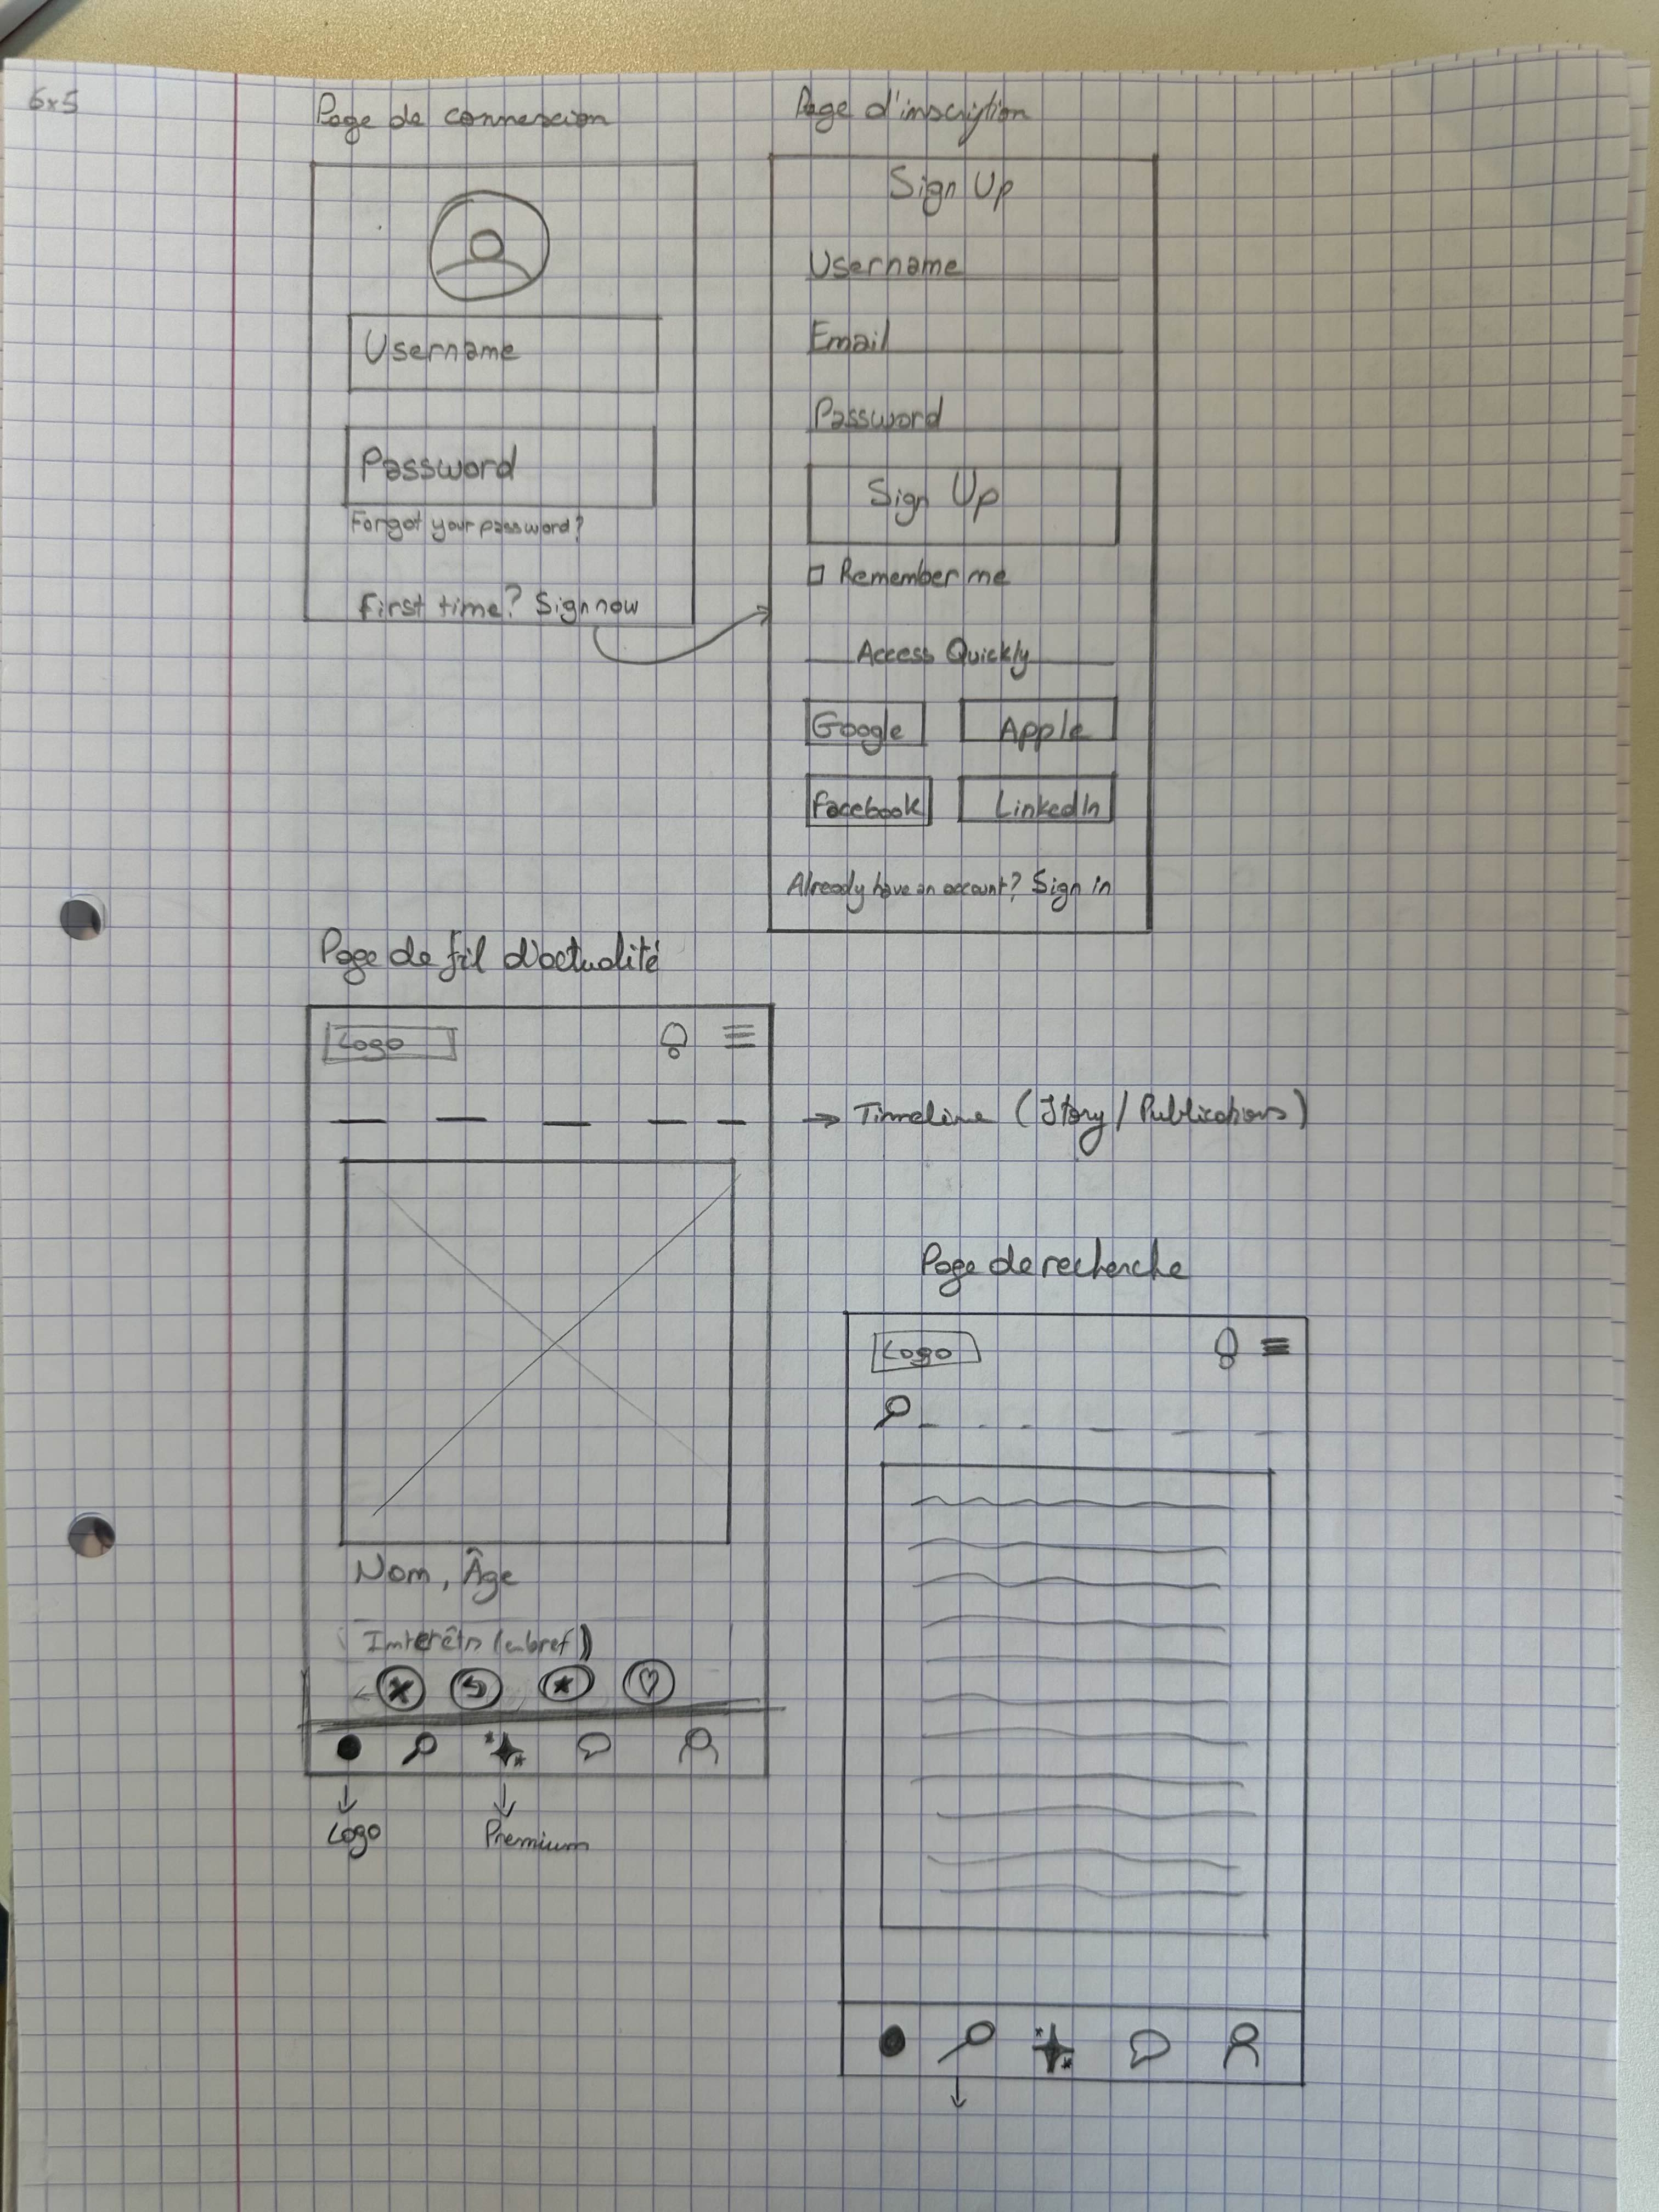 6x5
Page de connexion
Username
Password
Forgot your password?
First time? Sign now
Page d'inscription
Sign Up
Username
Email
Password
Sign Up
Remember me
Access Quickly
Google
Apple
Facebook
LinkedIn
Already have an account? Sign in
Page de fil d'actualité
Logo
→ Timeline (Story / Publications)
Nom, Âge
Intérêts (en bref)
Logo
Premium
Page de recherche
Logo